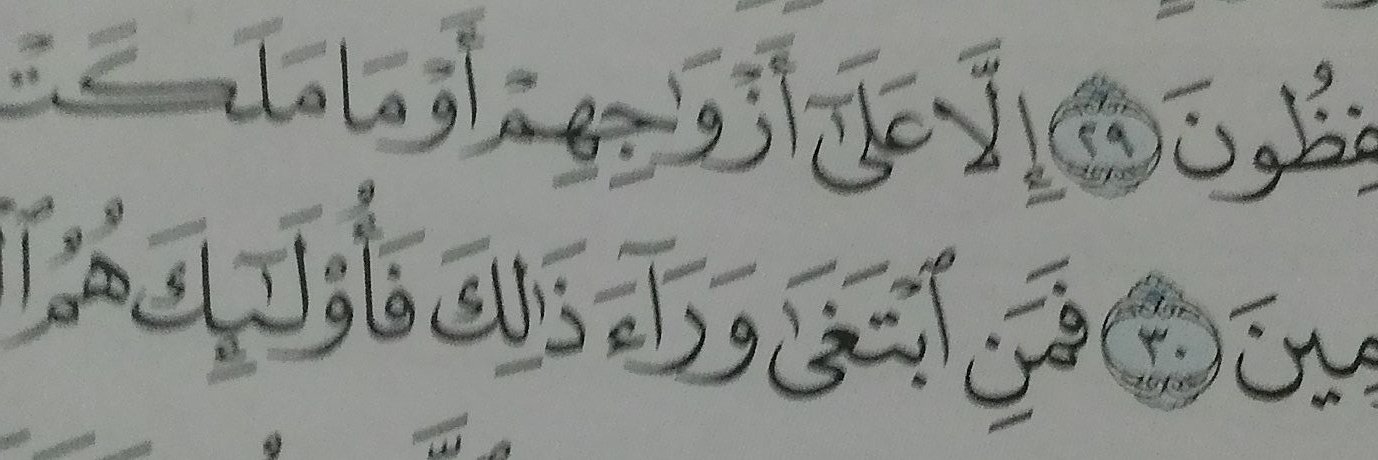 فِظُونَ ٢٩ إِلَّا عَلَىٰٓ أَزْوَٰجِهِمْ أَوْ مَا مَلَكَتْ
مِينَ ٣٠ فَمَنِ ٱبْتَغَىٰ وَرَآءَ ذَٰلِكَ فَأُو۟لَـٰٓئِكَ هُمُ